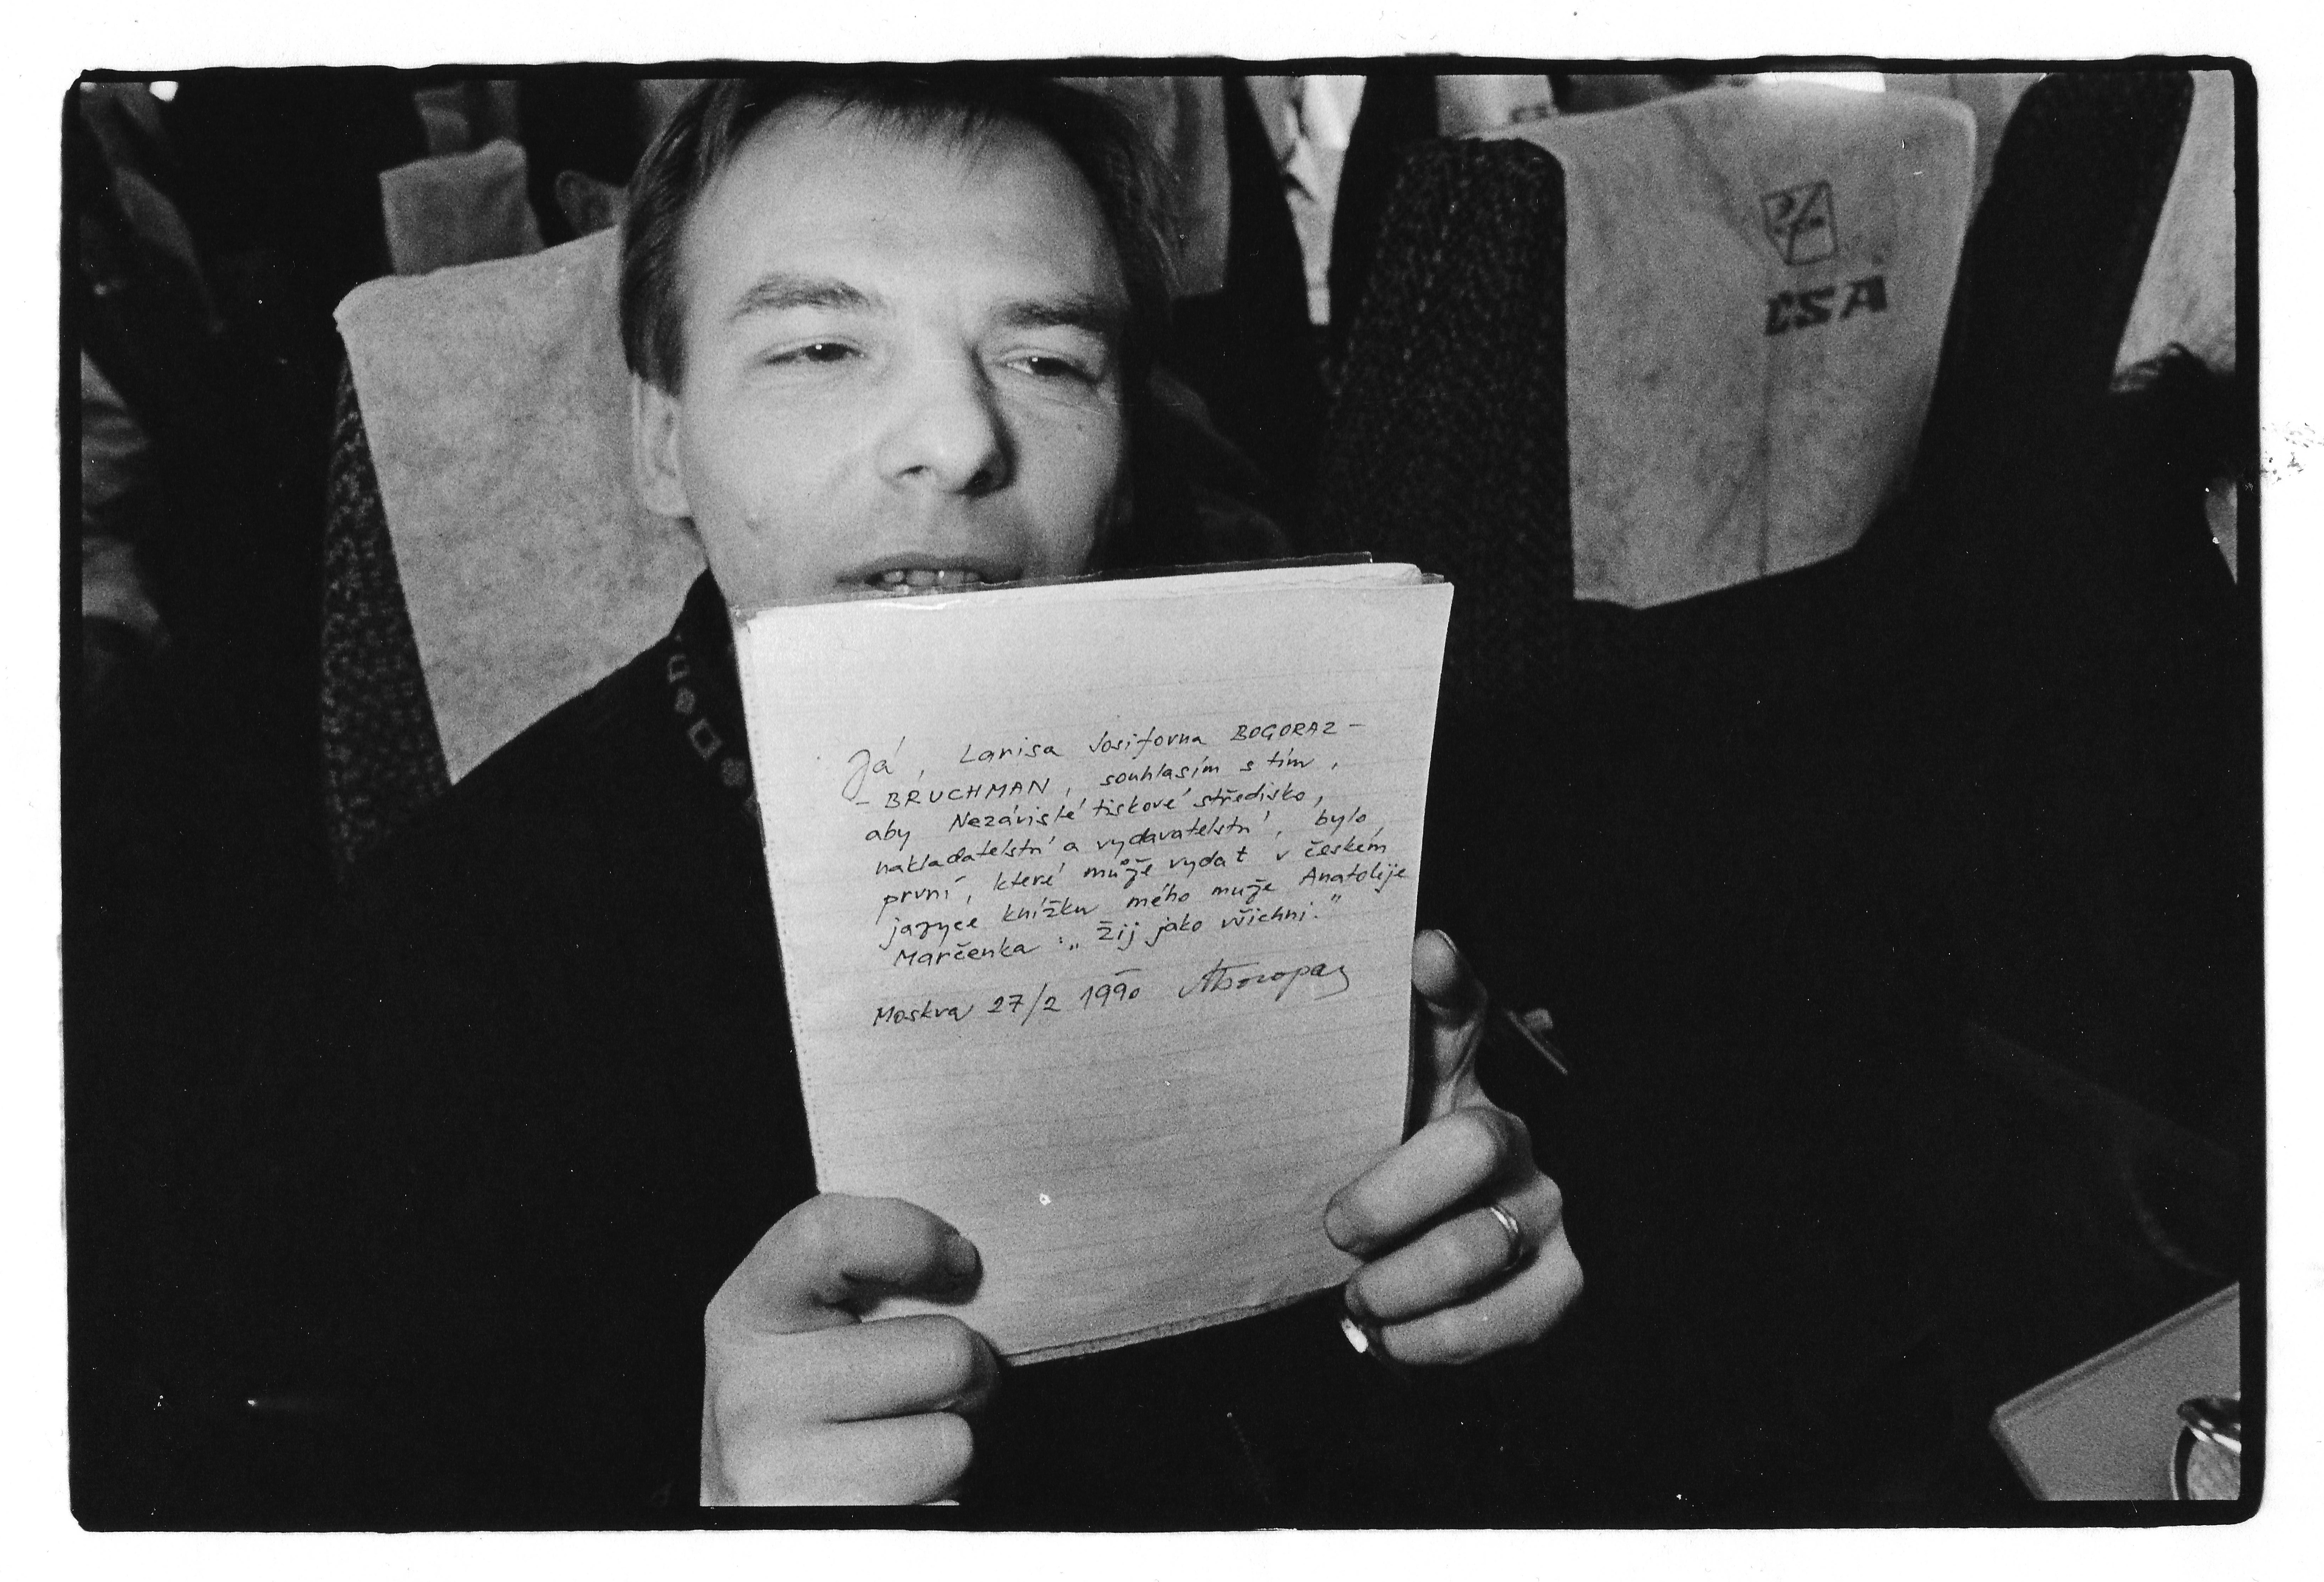 Já, Larisa Josifovna BOGORAZ-
- BRUCHMAN, souhlasím s tím,
aby Nezávislé tiskové středisko,
nakladatelství a vydavatelství, bylo
první, které může vydat v českém
jazyce knížku mého muže Anatolije
Marčenka: „Žij jako všichni."
Moskva 27/2 1990 ЛБогораз
ČSA